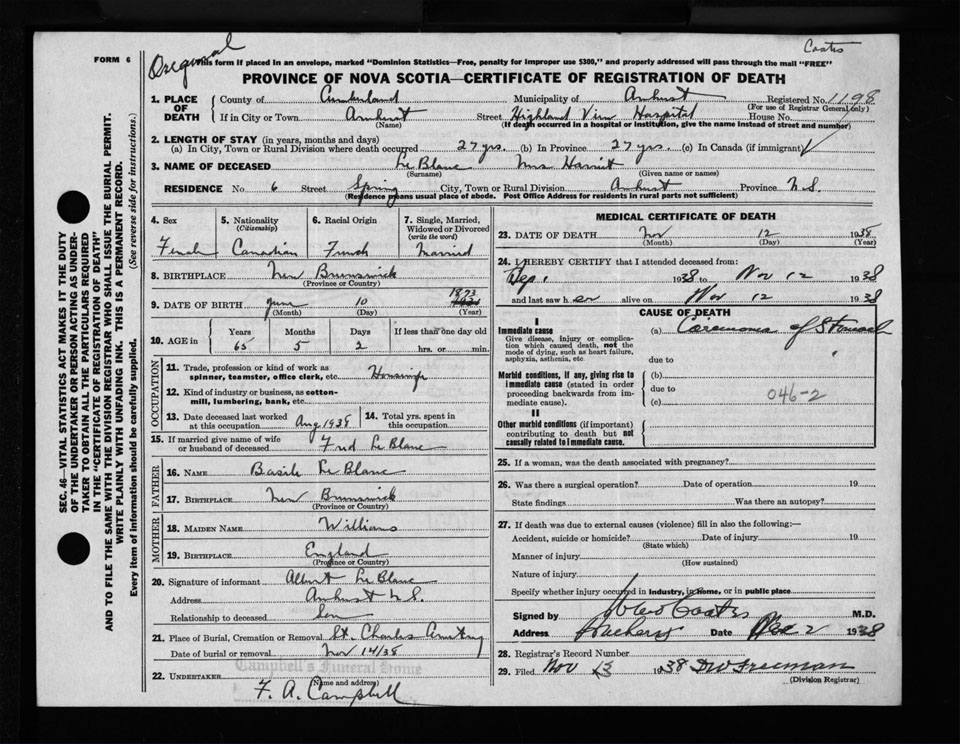 Coates
Original
FORM 6
This form if placed in an envelope, marked "Dominion Statistics—Free, penalty for improper use $300," and properly addressed will pass through the mail "FREE"
PROVINCE OF NOVA SCOTIA—CERTIFICATE OF REGISTRATION OF DEATH
1. PLACE OF DEATH
County of Cumberland Municipality of Amherst Registered No. 1198
(For use of Registrar General only)
If in City or Town Amherst Street Highland View Hospital House No.
(Name) (If death occurred in a hospital or institution, give the name instead of street and number)
2. LENGTH OF STAY (in years, months and days)
(a) In City, Town or Rural Division where death occurred 27 yrs. (b) In Province 27 yrs. (c) In Canada (if immigrant)
3. NAME OF DECEASED Le Blanc Mrs Harriet
(Surname) (Given name or names)
RESIDENCE No. 6 Street Spring City, Town or Rural Division Amherst Province N.S.
(Residence means usual place of abode. Post Office Address for residents in rural parts not sufficient)
4. Sex Female
5. Nationality (Citizenship) Canadian
6. Racial Origin French
7. Single, Married, Widowed or Divorced (write the word) Married
8. BIRTHPLACE New Brunswick
(Province or Country)
9. DATE OF BIRTH June 10 1873
(Month) (Day) (Year)
10. AGE in Years Months Days If less than one day old
65 5 2 hrs. or min.
OCCUPATION
11. Trade, profession or kind of work as spinner, teamster, office clerk, etc. Housewife
12. Kind of industry or business, as cotton-mill, lumbering, bank, etc.
13. Date deceased last worked at this occupation Aug 1938
14. Total yrs. spent in this occupation
15. If married give name of wife or husband of deceased Fred Le Blanc
FATHER
16. NAME Basile Le Blanc
17. BIRTHPLACE New Brunswick
(Province or Country)
MOTHER
18. MAIDEN NAME Williams
19. BIRTHPLACE England
(Province or Country)
20. Signature of informant Albert Le Blanc
Address Amherst N.S.
Relationship to deceased Son
21. Place of Burial, Cremation or Removal St. Charles Amherst
Date of burial or removal Nov 14/38
Campbell's Funeral Home
22. UNDERTAKER F. A. Campbell
(Name and address)
MEDICAL CERTIFICATE OF DEATH
23. DATE OF DEATH Nov 12 1938
(Month) (Day) (Year)
24. I HEREBY CERTIFY that I attended deceased from:
Sep 1 1938 to Nov 12 1938
and last saw her alive on Nov 12 1938
CAUSE OF DEATH
I
Immediate cause
Give disease, injury or complication which caused death, not the mode of dying, such as heart failure, asphyxia, asthenia, etc.
(a) Carcinoma of Stomach
due to
Morbid conditions, if any, giving rise to immediate cause (stated in order proceeding backwards from immediate cause).
(b)
due to
(c)
046-2
II
Other morbid conditions (if important) contributing to death but not causally related to immediate cause.
25. If a woman, was the death associated with pregnancy?
26. Was there a surgical operation? Date of operation 19
State findings Was there an autopsy?
27. If death was due to external causes (violence) fill in also the following:—
Accident, suicide or homicide? Date of injury 19
(State which)
Manner of injury
(How sustained)
Nature of injury
Specify whether injury occurred in Industry, in Home, or in public place
Signed by Coates M.D.
Address Amherst Date 2 1938
28. Registrar's Record Number
29. Filed Nov 13 1938 DW Freeman
(Division Registrar)
SEC. 46—VITAL STATISTICS ACT MAKES IT THE DUTY
OF THE UNDERTAKER OR PERSON ACTING AS UNDER-
TAKER TO OBTAIN ALL THE PARTICULARS REQUIRED
IN THE "CERTIFICATE OF REGISTRATION OF DEATH"
AND TO FILE THE SAME WITH THE DIVISION REGISTRAR WHO SHALL ISSUE THE BURIAL PERMIT.
WRITE PLAINLY WITH UNFADING INK. THIS IS A PERMANENT RECORD.
Every item of information should be carefully supplied. (See reverse side for instructions.)